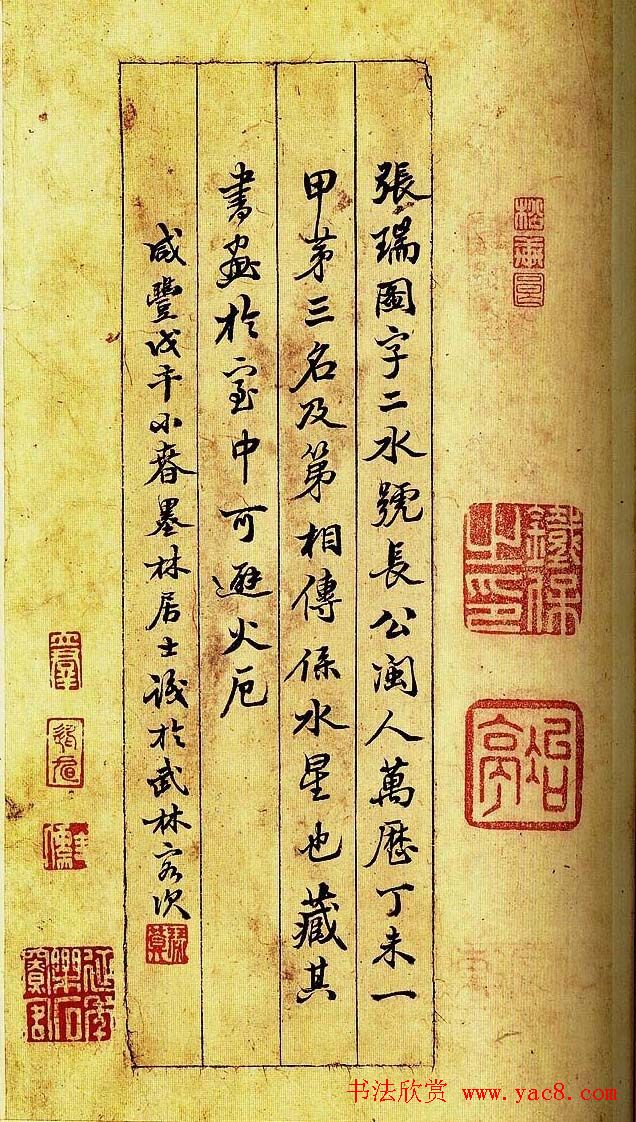 張瑞圖字二水號長公閩人萬歷丁未一
甲苐三名及第相傳係水星也藏其
書畫於室中可避火厄
咸豐戊午小春墨林居士識於武林客次
鐵保之印
書法欣赏 www.yac8.com